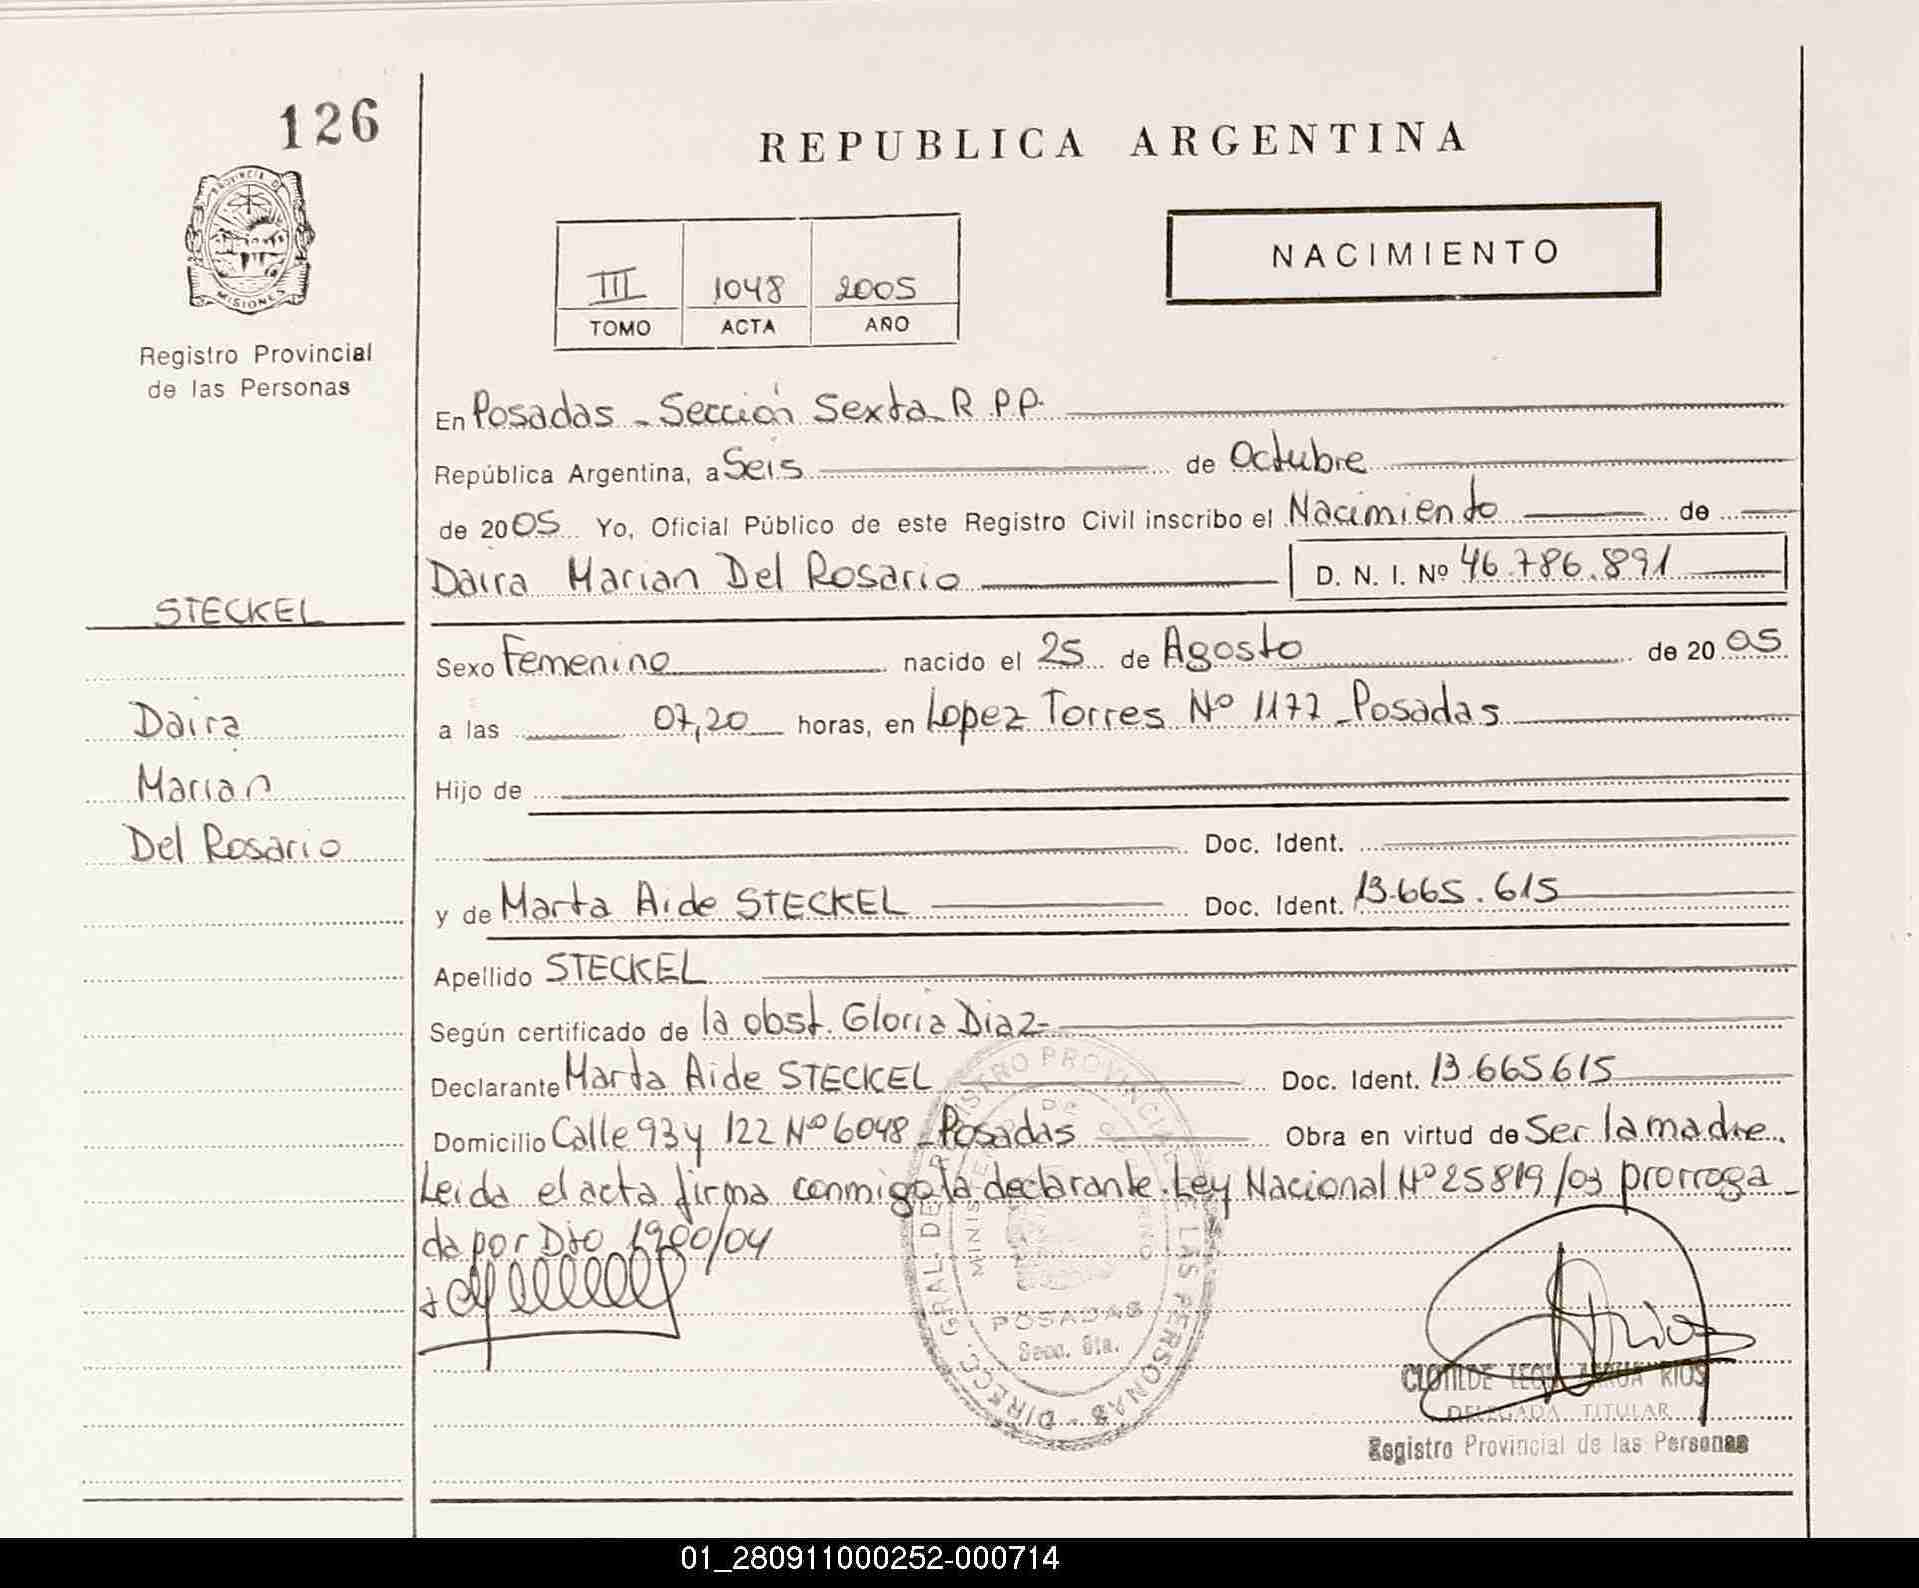 126
REPUBLICA ARGENTINA
PROVINCIA DE
MISIONES
Registro Provincial
de las Personas
III 1048 2005
TOMO ACTA AÑO
NACIMIENTO
En Posadas - Sección Sexta R.P.P.
República Argentina, a Seis de Octubre
de 2005 Yo, Oficial Público de este Registro Civil inscribo el Nacimiento de
Daira Marian Del Rosario D. N. I. Nº 46.786.891
STECKEL
Sexo Femenino nacido el 25 de Agosto de 2005
Daira
a las 07,20 horas, en Lopez Torres Nº 1177 - Posadas
Marian
Hijo de
Del Rosario
Doc. Ident.
y de Marta Aide STECKEL Doc. Ident. 13.665.615
Apellido STECKEL
Según certificado de la obst. Gloria Diaz-
Declarante Marta Aide STECKEL Doc. Ident. 13.665.615
Domicilio Calle 93 y 122 Nº 6048 - Posadas Obra en virtud de Ser la madre.
Leida el acta firma conmigo la declarante. Ley Nacional Nº 25819/03 prorroga
da por Dto 1900/04
DIRECC. GRAL. DE REGISTRO PROVINCIAL DE LAS PERSONAS
POSADAS
Secc. 6ta.
CLOTILDE RIOS
DELEGADA TITULAR
Registro Provincial de las Personas
01_280911000252-000714